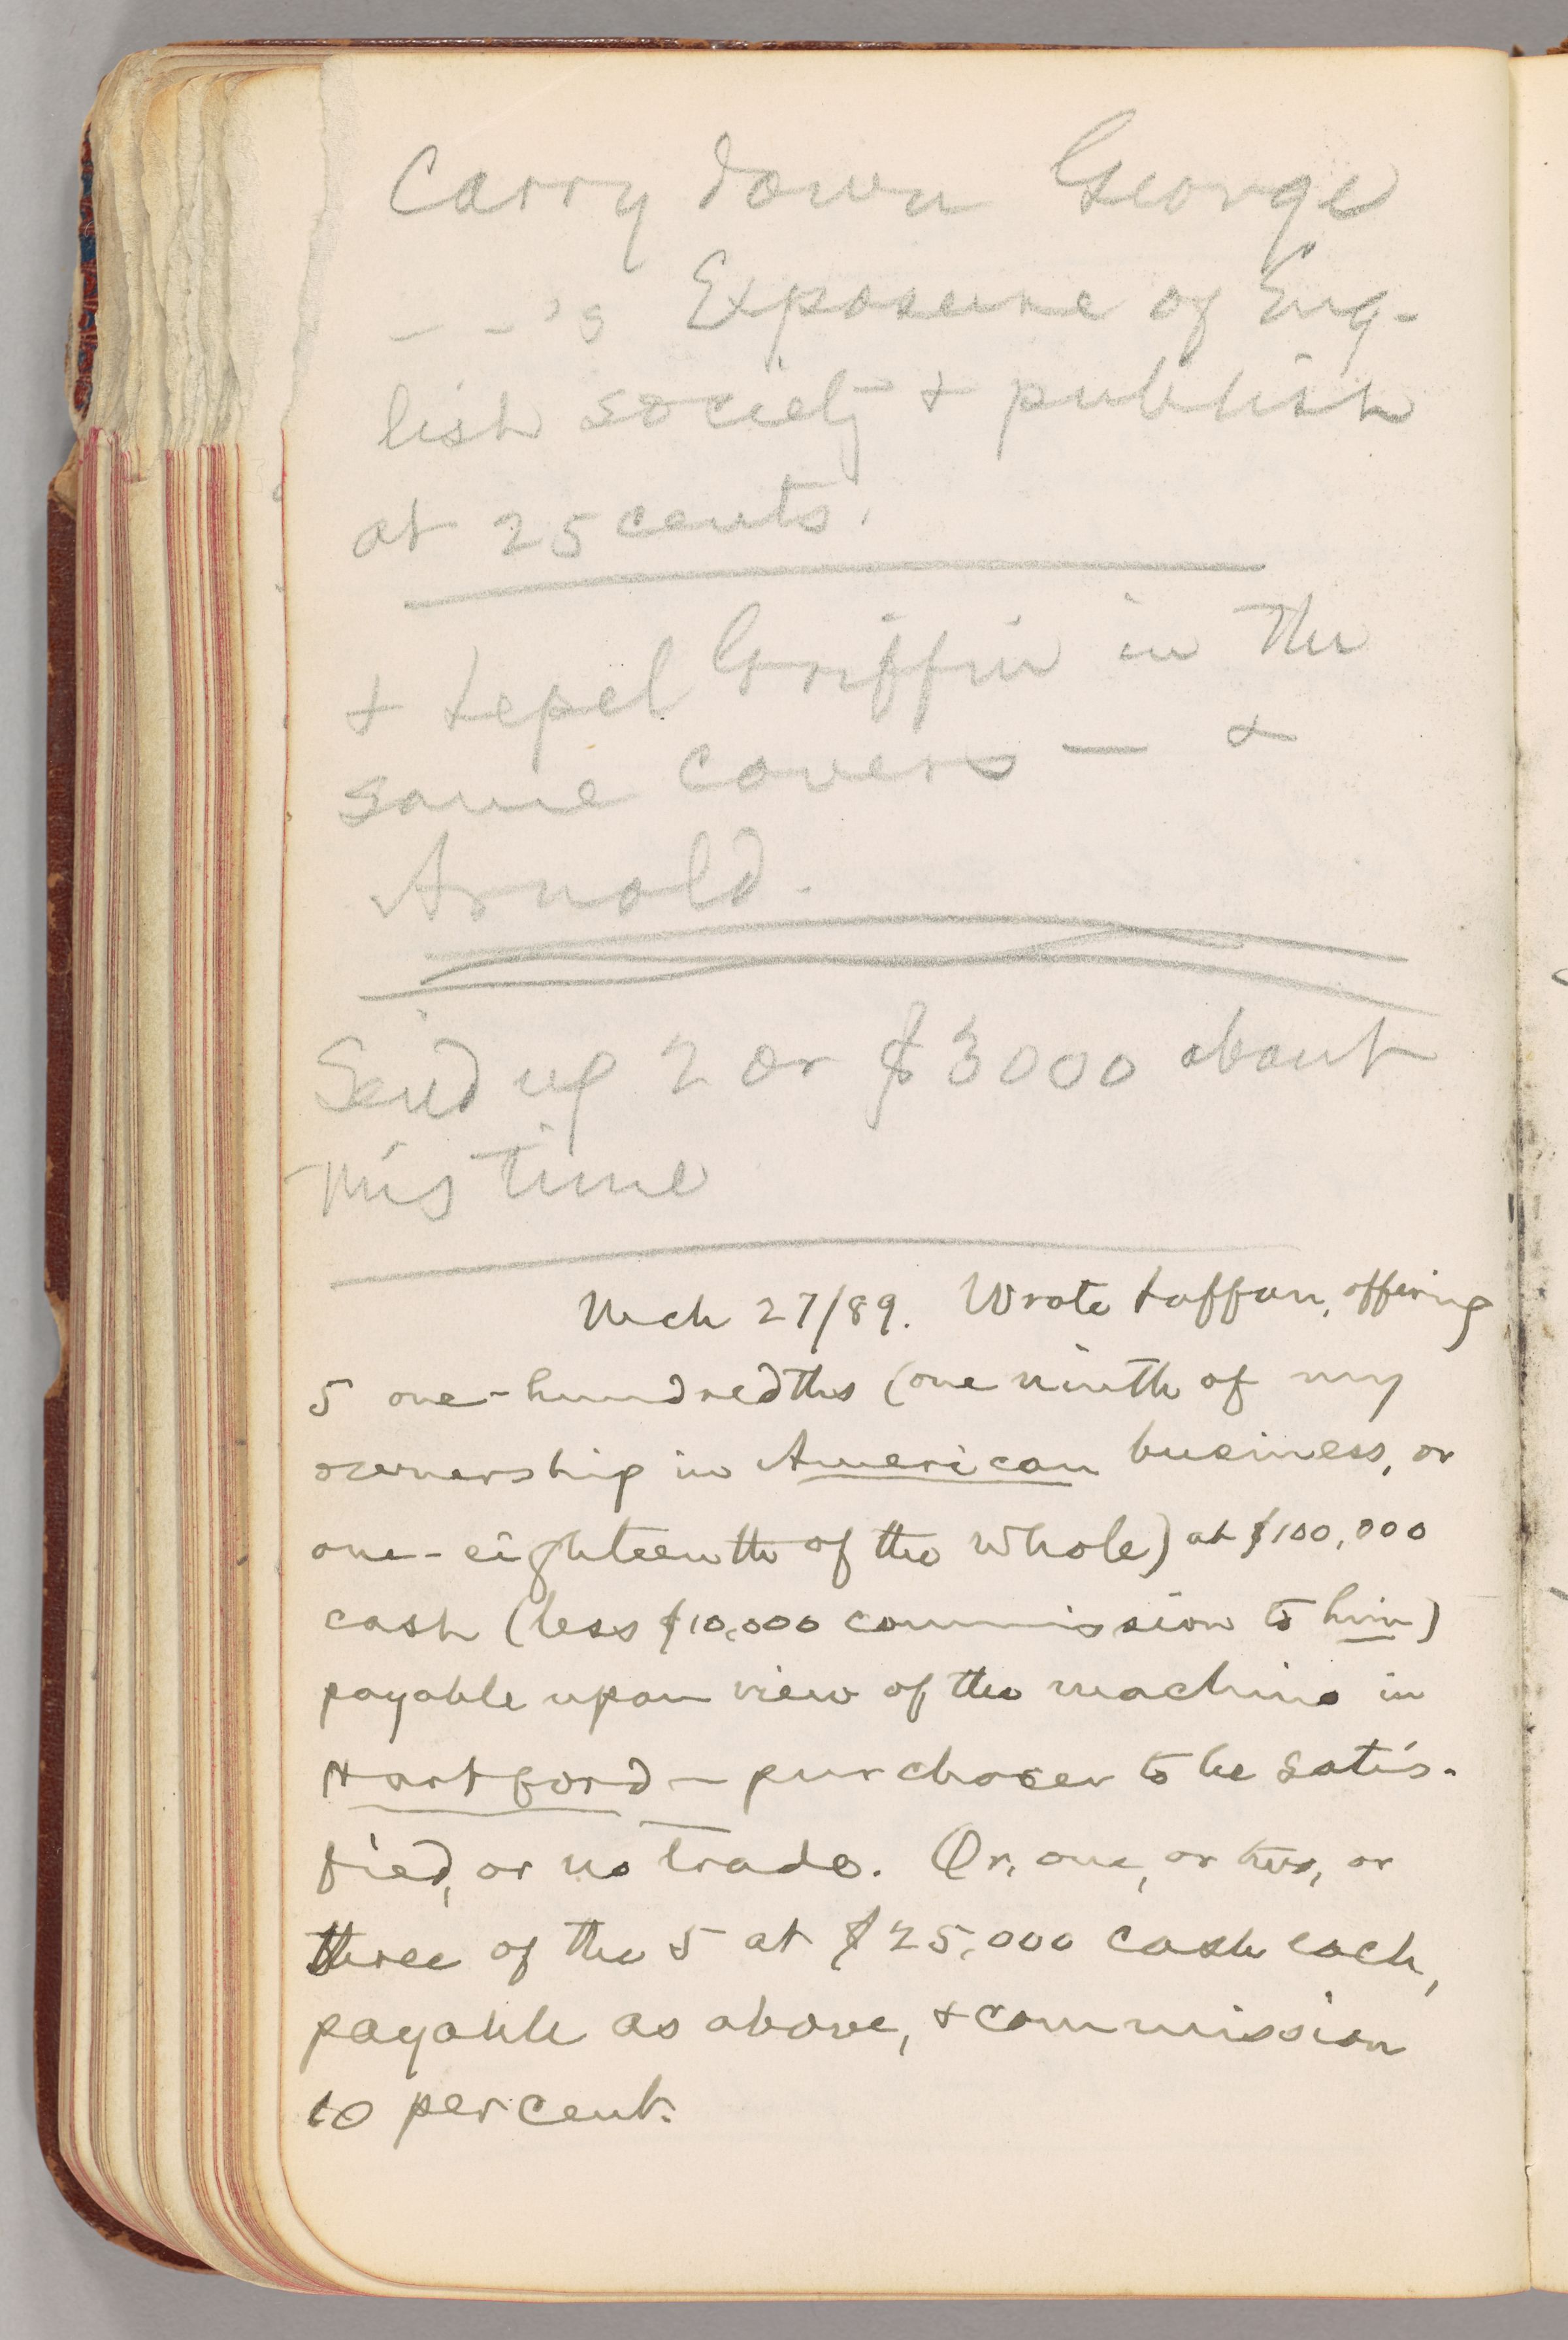 Carry down George
— —'s Exposure of Eng-
lish society & publish
at 25 cents.
& Lepel Griffin in the
same covers — &
Arnold.
Send up 2 or $3000 about
this time
Mch 27/89. Wrote Laffan, offering
5 one-hundredths (one ninth of my
ownership in American business, or
one-eighteenth of the whole) at $100,000
cash (less $10,000 commission to him)
payable upon view of the machine in
Hartford — purchaser to be satis-
fied, or no trade. Or, one, or two, or
three of the 5 at $25,000 cash each,
payable as above, & commission
10 per cent.